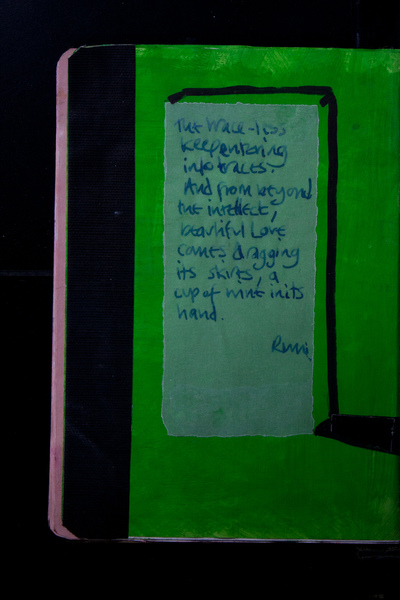 The trace-less
keep entering
into traces.
And from beyond
the intellect,
beautiful Love
comes dragging
its skirts, a
cup of wine in its
hand.
Rumi.